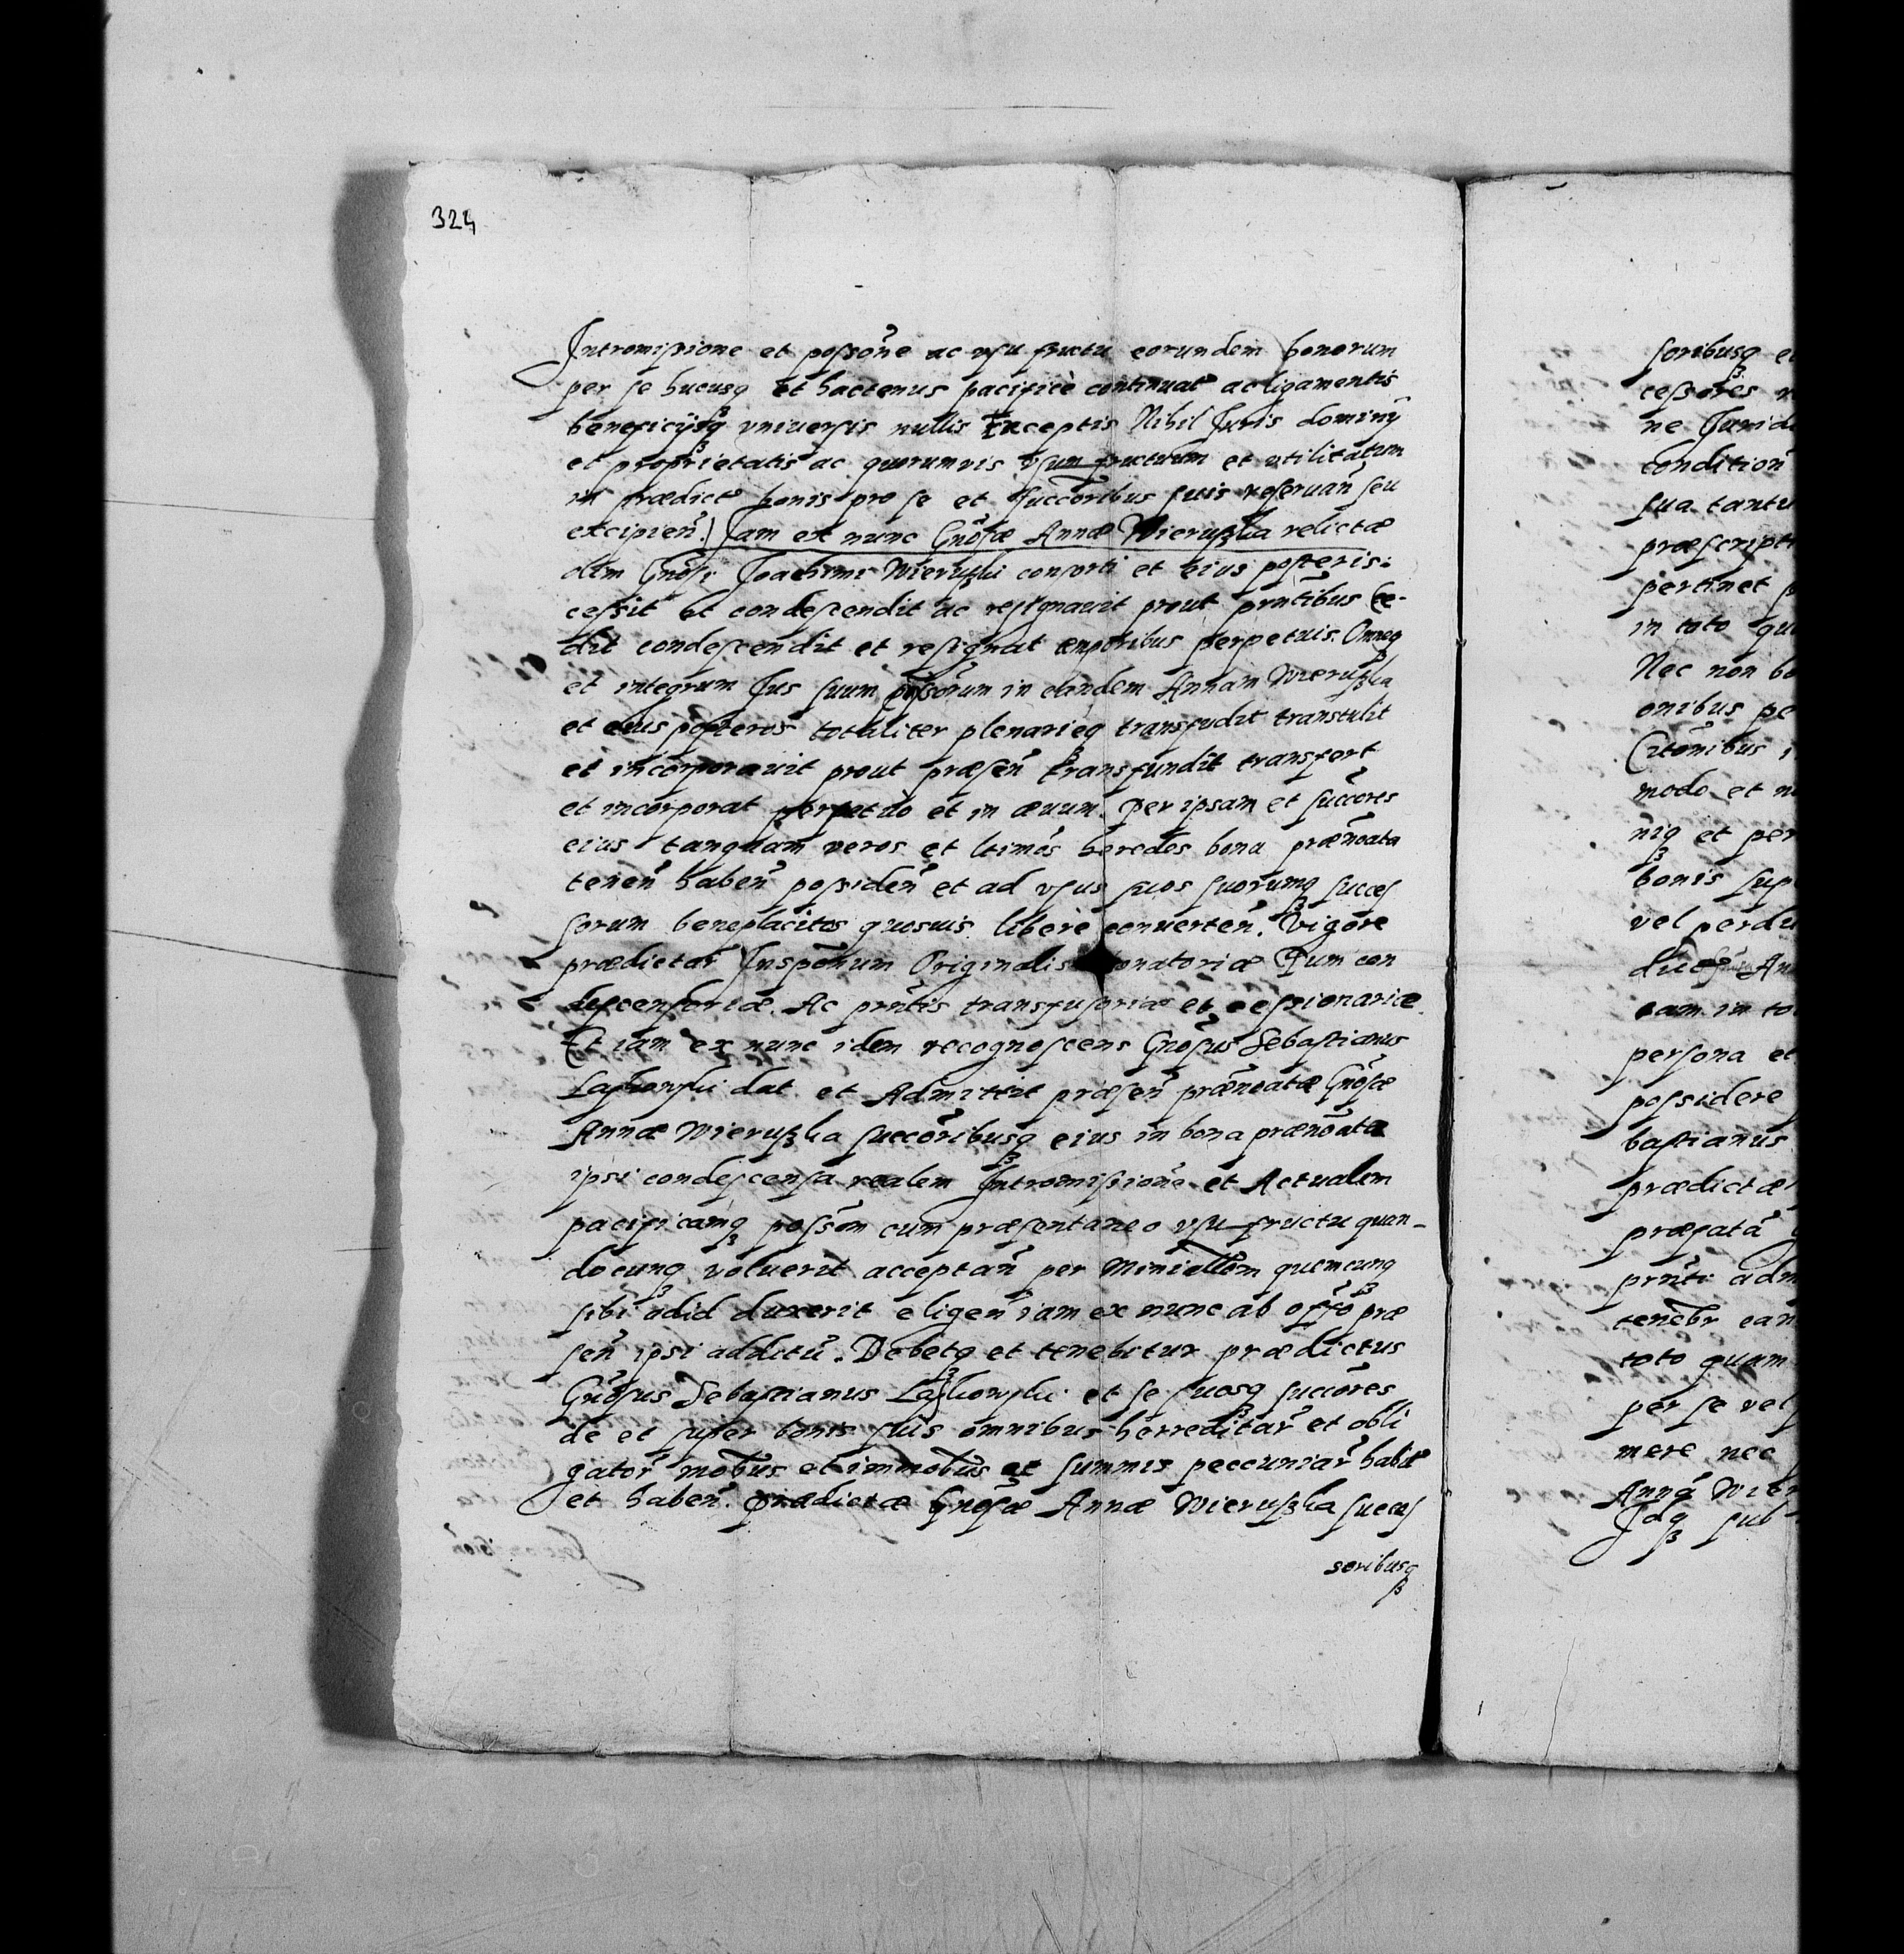 324
Intromissione et possõne ac usu fructu eorundem bonorum
per se hucusq et hactenus pacificè continuat ac ligamentis
beneficÿsq universis nullis Exceptis Nihil Juris dominÿ
et proprietatis ac quorumvis usum fructuum et utilitatum
in prædict bonis pro se et succõribus suis reservañ seu
excipień. Jam ex nunc Gñosæ Annæ Wieruszka relictæ
olim Gñosi Joachimi Wieruszki consorti et eius posteris:
cessit et condescendit ac resignavit prout pñtibus Ce-
dit condescendit et resignat temporibus perpetuis. Omneq
et integrum Jus suum in eandem Annam Wieruszka
et eius posteros totaliter plenarieq transfudit transtulit
et incorporavit prout præseñ transfundit transfert
et incorporat perpetuo et in ævum. Per ipsam et succõres
eius tanquam veros et ltimos heredes bona prænoata
teneñ habeñ possideñ et ad usus suos suorumq succes
sorum beneplacitos quosvis liberè converteñ. Vigore
prædictar Originalis onatoriæ Tum con
descensoriæ. Ac pñtis transfusoriæ et cessionariæ.
Et iam ex nunc idem recognoscens Gñosus Sebastianus
Laskowski dat et Admittit præseñ prænoatæ Gñosæ
Annæ Wieruszka succõribusq eius in bona prænõata
ipsi condescensa realem Intromissionẽ et Actualem
pacificamq possõm cum præsentaneo usu fructu quan-
docunq voluerit acceptañ per Ministlem quemcunq
sibi ad id duxerit eligeñ iam ex nunc ab offo præ
señ ipsi additũ. Debetq et tenebitur prædictus
Gñosus Sebastianus Laskowski et se suosq succõres
de et super bonis suis omnibus hæreditar et obli
gator mobus et immobus et summis peccuniar habit
et habeñ. Prædictæ Gñosæ Annæ Wieruszka succes
soribusq
soribusq et
cessores
ne Jurid
condition
sua tantu
præscript
pertinet
in toto qu
Nec non bo
onibus pe
modo et n
niq et per
bonis sup
vel perdu
An
eam in to
persona et
possidere
bastianus
prædictæ
præfatã
pñti adm
tenebr ean
toto quam
per se vel
mere nec
Annã Wier
Idq sub